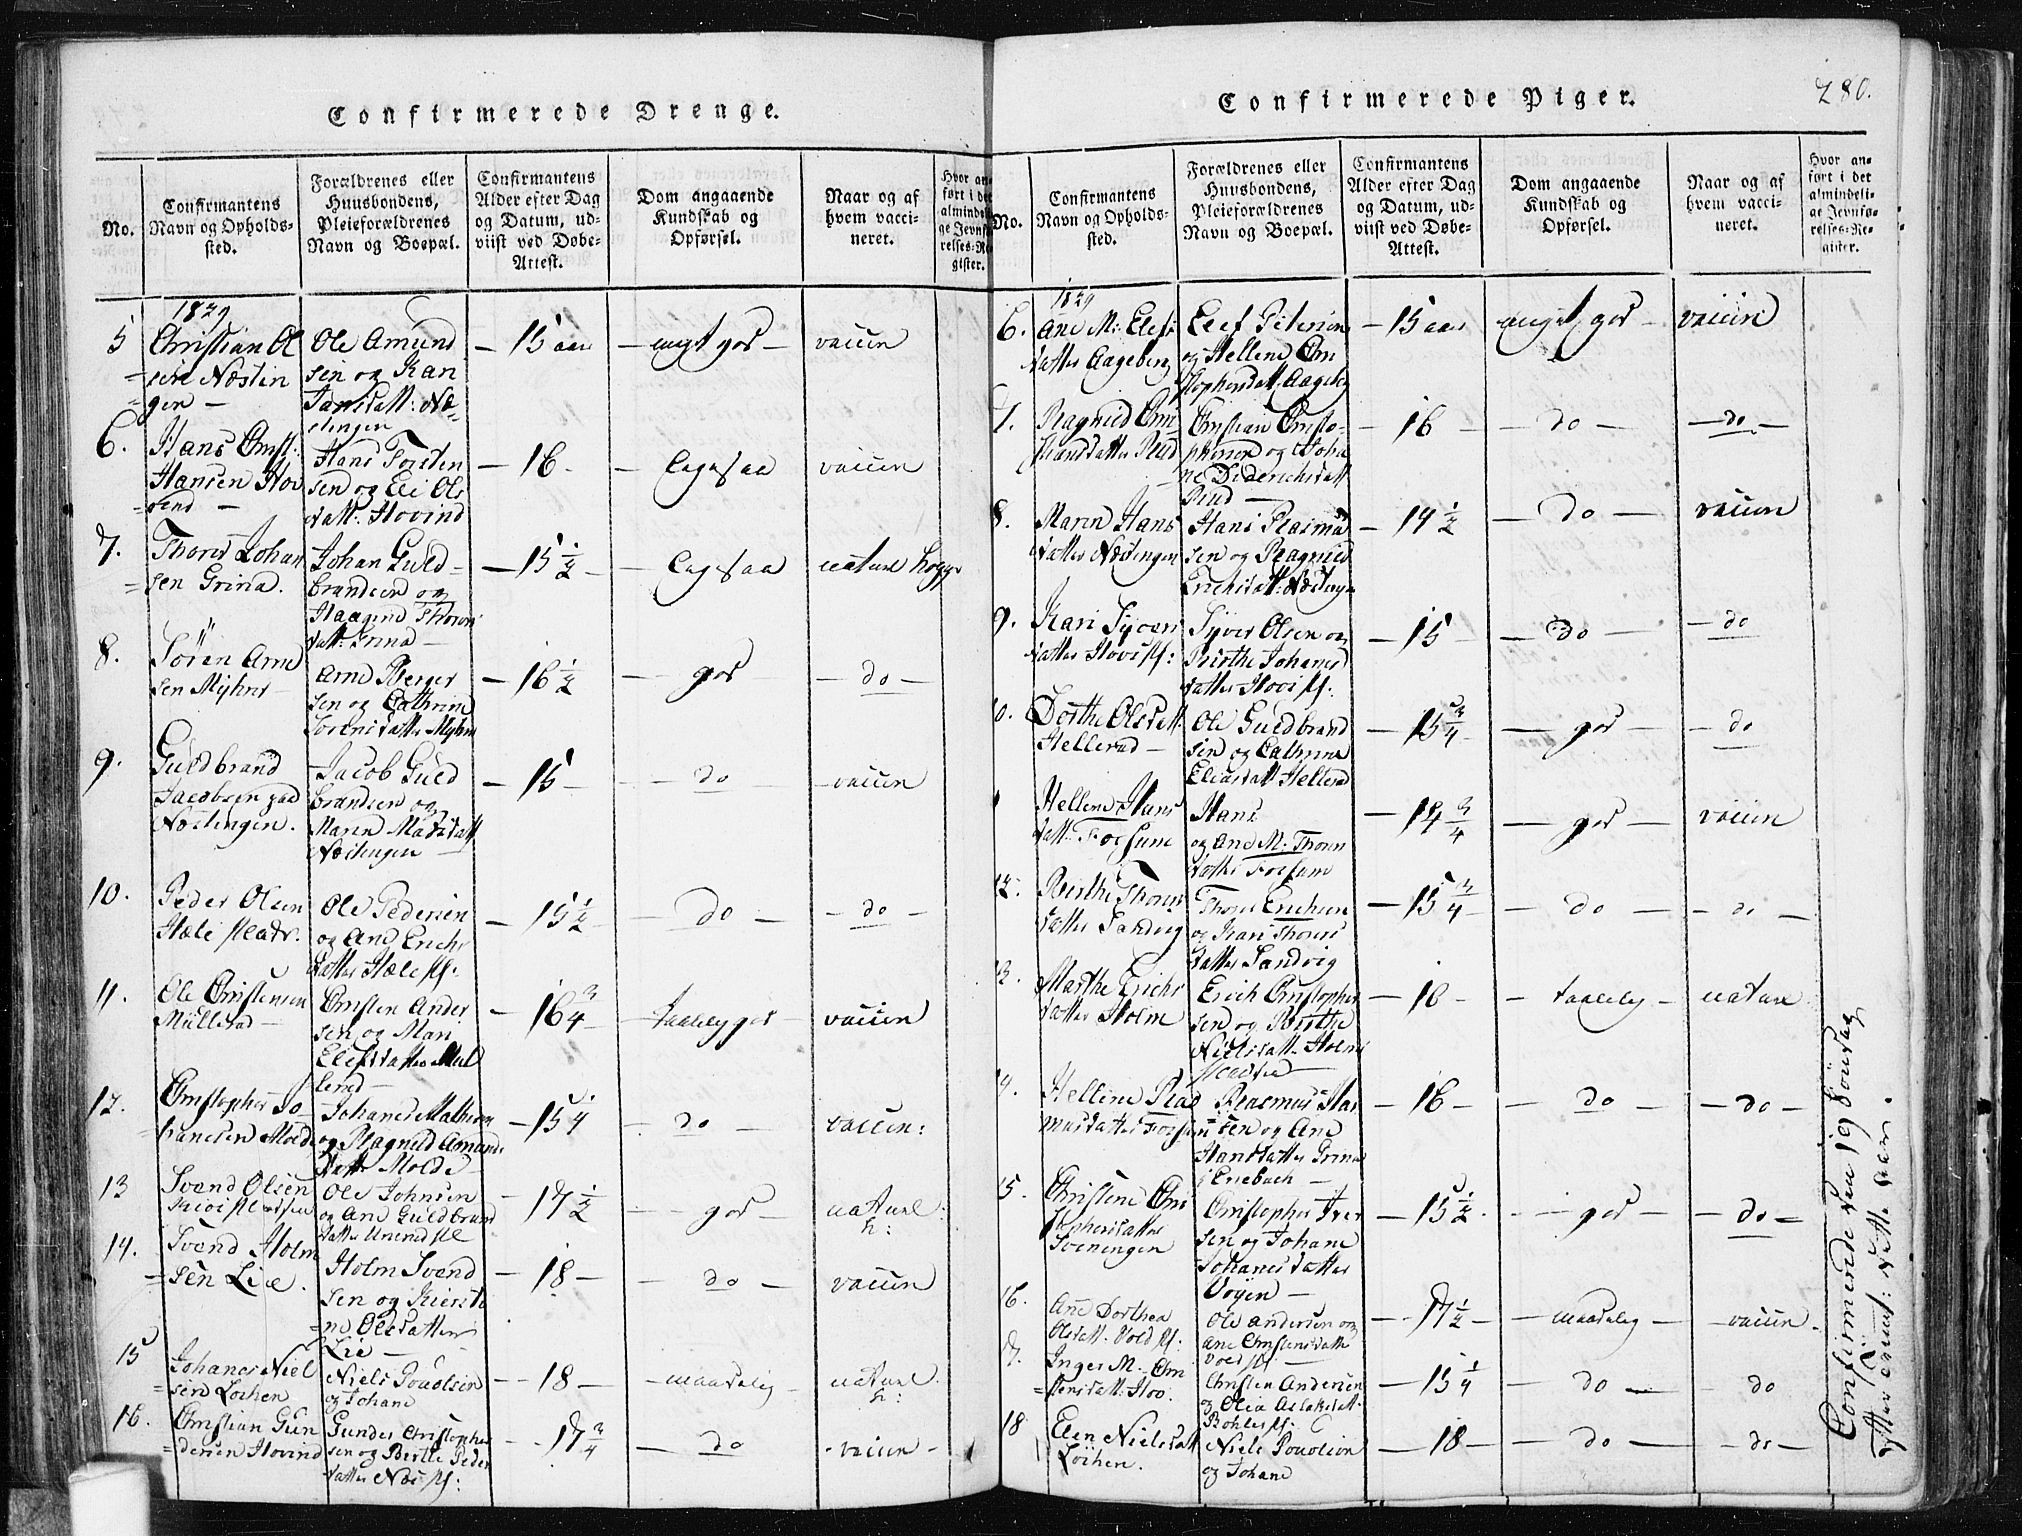 Confirmerede Drenge.
No.
Confirmantens
Navn og Opholds-
sted.
Forældrenes eller
Huusbondens,
Pleieforældrenes
Navn og Boepæl.
Confirmantens
Alder efter Dag
og Datum, ud-
viist ved Døbe-
Attest.
Dom angaaende
Kundskab og
Opførsel.
Naar og af
hvem vacci-
neret.
Hvor an-
ført i det
almindeli-
ge Jevnfø-
relses-Re-
gister.
1829
5
Christian Ol
=sen Næstin
=gen —
Ole Amund
sen og Kari
Hansdatt: Næ-
stingen
— 15 aar
— meget god —
vaccin
6.
Hans Christ:
Hansen Hov
=vind —
Hans Torsten
sen og Eli Ols
datt: Hovind
— 16 —
— Ligesaa
vaccin
7.
Thorer Johan
=sen Grina.
Johan Guld-
brandsen og
Haagine Thorers
datt: Grina —
— 15 1/2 —
— Ligesaa
naturl kopper
8.
Søren Arne
sen Myhrer —
Arne Berger
sen og Cathrine
Sørensdatter Myhre
— 16 1/2
— god —
— do —
9.
Guldbrand
Jacobsen
Næstingen.
Jacob Guld
brandsen og
Maren Madsdatt
Næstingen —
— 15 —
— do
— vaccin
10.
Peder Olsen
Hæle
Ole Pedersen
og Ane Erichs
datter Hæle
— 15 1/2
— do —
— do —
11.
Ole Christensen
Müllerud —
Christen Ander
sen og Mari
Elefsdatter Mül
lerud —
— 16 3/4 —
— taalelig god —
vaccin
12.
Christopher Jo
=hannesen Molde
Johannes Mathisen
og Ragnild Amunds
datt Molde —
— 15 1/4
— do —
vaccin:
13
Svend Olsen
Ole Johnsen
og Ane Guldbrands
datter
— 17 1/2
— god —
naturl:
k:
14.
Svend Holm
=sen Lie.
Holm Svend
sen og Kiersti
=ne Olsdatter
Lie —
— 18 —
— do —
vaccin
15
Johanes Niel
=sen Løchen
Niels Povelsen
og Johane
— 18 —
— maadelig —
naturl.
k:
16.
Christian Gun
=dersen Hovind
Gunder Christopher
sen og Berthe Peder
datter Næs
— 17 3/4
— do —
— vaccin —
Confirmerede Piger.
280.
No.
Confirmantens
Navn og Opholds-
sted.
Forældrenes eller
Huusbondens,
Pleieforældrenes
Navn og Boepæl.
Confirmantens
Alder efter Dag
og Datum, ud-
viist ved Døbe-
Attest.
Dom angaaende
Kundskab og
Opførsel.
Naar og af
hvem vacci-
neret.
Hvor an-
ført i det
almindeli-
ge Jevnfø-
relses-Re-
gister.
1829
6.
Ane M: Elefs
datter Aageberg
Elef Petersen
og Hellene Chri
stophersdatt: Aageberg
— 15 aar
meget god —
vaccin
7.
Ragnild Chri
stiansdatter Rud
Christian Christo-
phersen og Joha
ne Diderichsdatt
Rud —
— 16 —
— do —
— do —
8.
Maren Hans
datter Næstingen
Hans Rasmu
sen og Ragnild
Erichsdatt: Næstingen
— 14 1/2
— do —
vaccin
9.
Kari Syvers
datter Hovi
Syver Olsen og
Birthe Johanes
datter Hovi
— 15 —
— do —
— do
10.
Dorthe Olsdatt
Hellerud —
Ole Guldbrand
sen og Cathrine
Eliasdatt Hellerud
— 15 3/4
— god —
— do
Hellene Hans
datt: Fossum
Hans
og Ane M: Thores
datter Fossum
— 14 3/4
— god —
vaccin
12.
Birthe Thores
datter Sandvig
Thores Erichsen
og Kari Thores
datter Sandvig
— 15 3/4
— do —
— do —
13.
Marthe Erichs
datter Holm
Erich Christopher
sen og Birthe
Nielsdatt. Holms
— 16 —
— taalelig —
naturl
14.
Hellene Ras
musdatter Fossum
Rasmus Han
sen og Ane
Hansdatter Grina
i Enebach —
— 16 —
— do —
— do —
15.
Christine Chri
stophersdatter
Sveningen
Christopher Iver
sen og Johane
Johanesdatter
Vøyen —
— 15 1/2 —
— god —
— do —
16.
Ane Dorthea
Olsdatt. Vold
Ole Andersen og
Ane Christensdatt
Vold
— 17 1/2
— maadelig —
— vaccin —
17.
Inger M. Chri
=stensdatt: Hov.
Christen Andersen
og Olia Aslaksdatt
— 15 1/4
— do —
— do
18
Elen Nielsdatt
Løchen.
Niels Povelsen
og Johane
— 18 —
— do —
— do —
Confirmerede den 19 Söndag
efter : dette Aar.